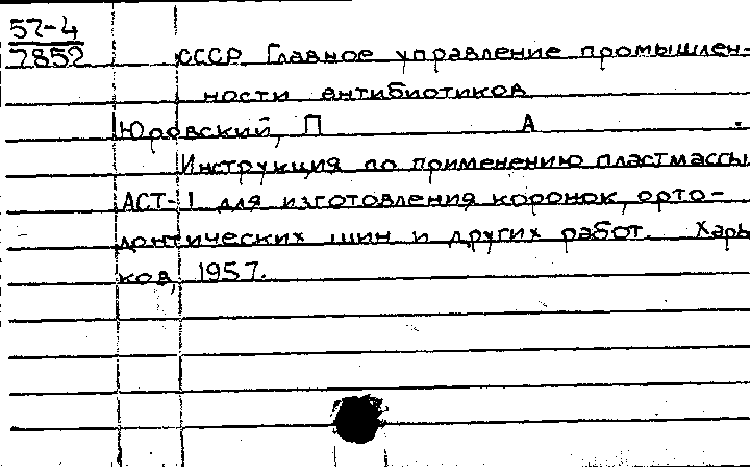 57-4
7852
СССР Главное управление промышлен-
ности антибиотиков
Юровский, П А
Инструкция по применению пластмассы
АСТ-1 для изготовления коронок, орто-
донтических шин и других работ. Харь
ков, 1957.